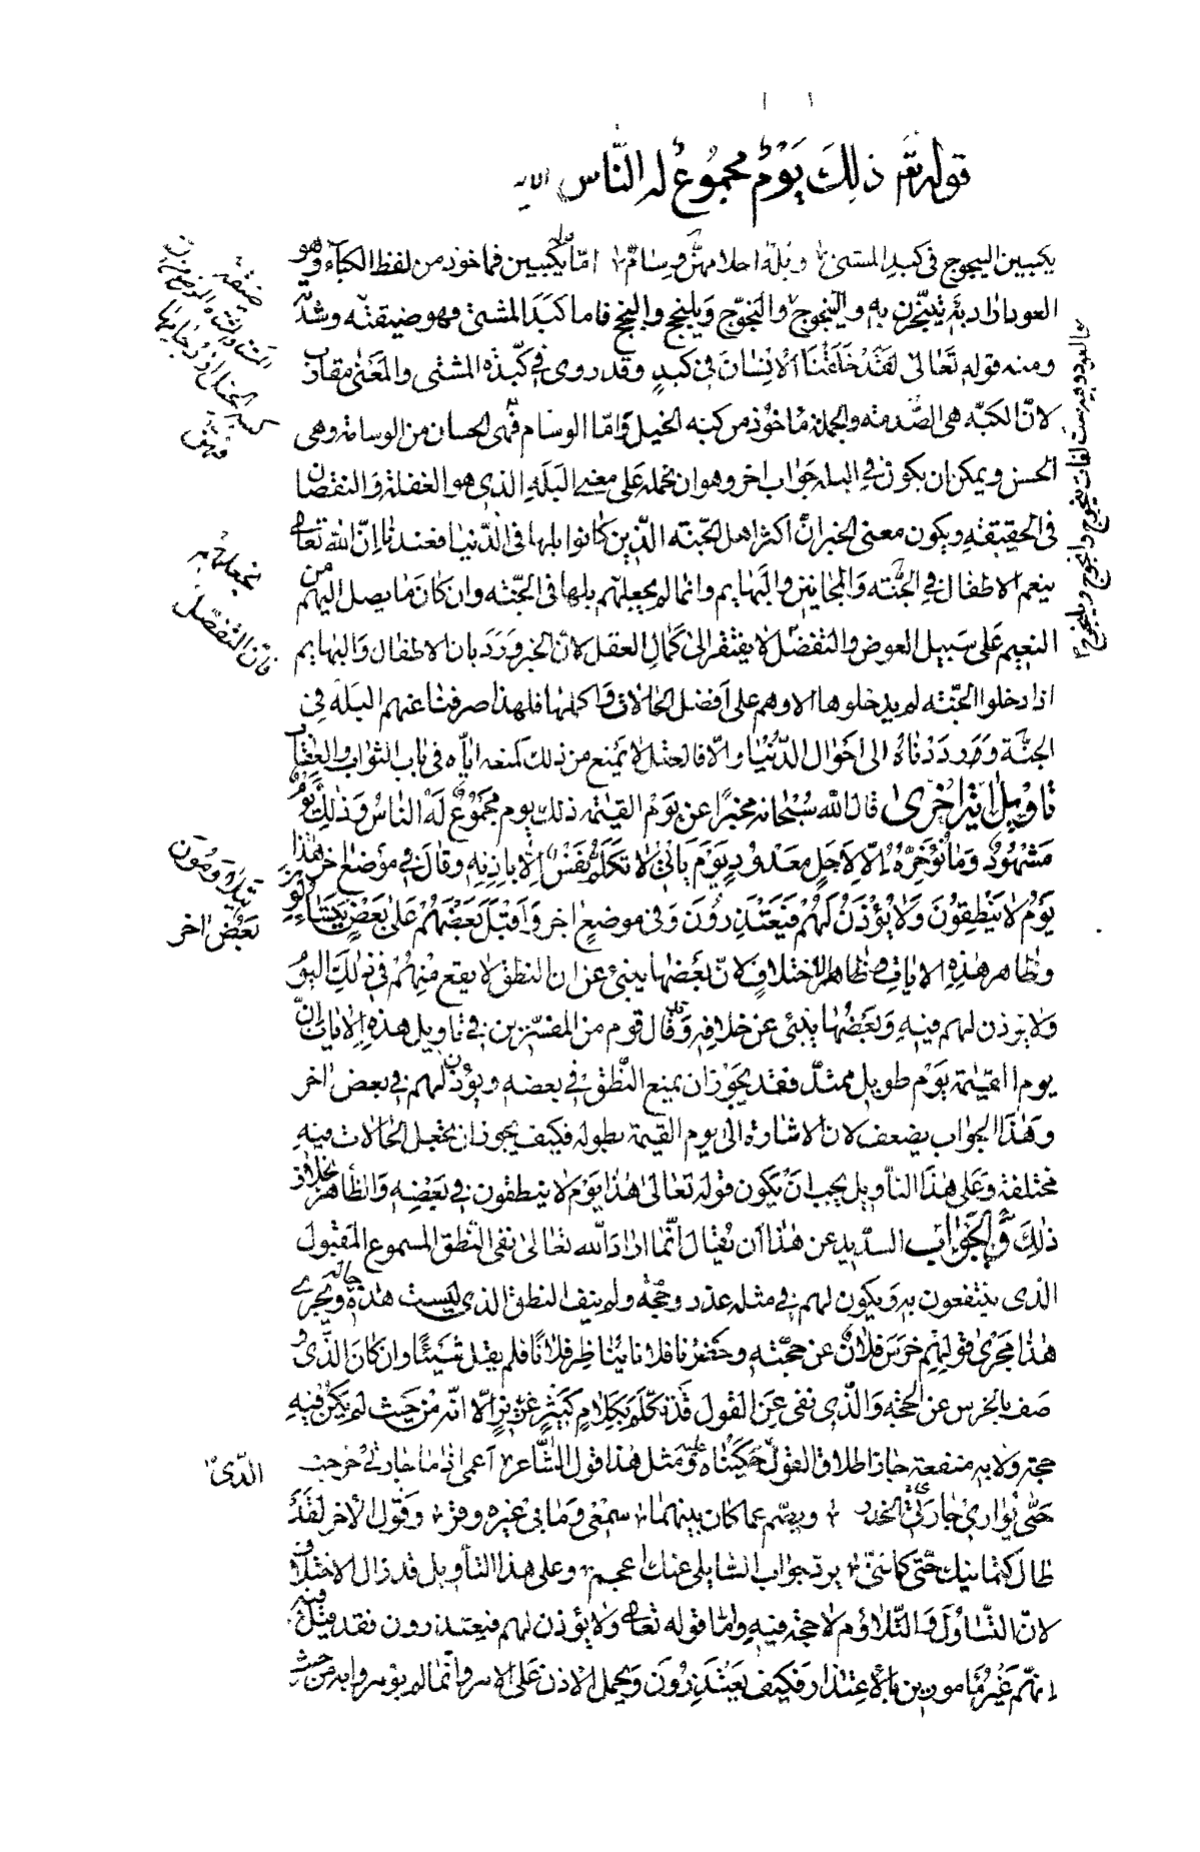 قوله تعَ ذلِكَ يَوْمٌ مجمُوعٌ له النَّاس الايه
يكبيين اليبجوج فى كبد المشتى وبُله احلامهنّ وسام امّا يكبيين فماخوذ من لفظ الكباء وهو
العود اراد به يتبخّرن به والينجوج والنجوج ويلنجج والنجج فاما كَبَدَ المشتى فهو ضيقته وشدّته
ومنه قوله تَعَالى لَقَدْ خَلَقْنَا الاِنسَانَ فى كبدٍ وقد روى فى كَبّة المشتى والمَعنى متقارب
لانّ الكبّه هى الصّدمه والحمله مَاخوذ من كبه الخيل وَامّا الوسام فهى الحسان من الوسامه وهى
الحسن ويمكن ان يكون فى البله جَوَاب اخر وهو ان يحمله على معنى البَلَهِ الذى هو الغفلة وَالنقصَان
فى الحقيقة ويكون معنى الخبر انّ اكثر اهل الجّنه الّذين كانوا بلها فى الدّنيا فعندنا انّ الله تعالى
ينعم الاطفال فى الجنّه وَالمجانين والبَهايم وانما لم يجعلهم بلها فى الجنّه وان كَانَ مَا يصل اليهم من
النعيم عَلى سَبيل العوض والتفضّل لا يفتقر الى كَمَال العقل لانّ الخبر وَرَدَ بان الاطفال والبهايم
اذا دخلوا الجّنه لم يدخلوها الا وهم على اَفضل الحَالات وَاكملها فلهذا صرفنا عنهم البَلَه فى
الجنّة وَرَددْناهُ الى احْوَال الدّنْيَا والّا فالعقل لا يمنع من ذلك كمنعه ايّاه فى باب الثواب والعِقاب
تاويل ايَة اُخرىٰ قال الله سُبْحَانه مخبرًا عن يوم القيمة ذلك يوم مجموعٌ لَه الناسُ وَذلك يَومٌ
مَشهُودٌ وَمَا نُؤخّرهُ اِلّا لِاَجَلٍ مَعْدُودٍ يَوْمَ يَاتى لا تكلّمُ نَفسٌ اِلّا باِذنِهِ وقال فى مَوضعٍ اخر هٰذا
يَومُ لا يَنْطِقُونَ وَلا يُؤْذَنُ لَهُمْ فَيَعْتَذِرُونَ وَفى موضعٍ اخر وَاَقبَلَ بَعْضُهُمْ عَلى بَعْضٍ يَتَسَاءلُونَ
وظاهر هٰذِهِ الايَات ظاهر الاختلافِ لانّ بَعْضَها ينبئ عن ان النطق لا يقع مِنهُمْ فى ذلك اليومُ
وَلا يؤذن لهم فيه وَبَعْضُهَا ينبئ عن خلافه وَقد قال قوم من المفسّرين فى تاويل هذه الايات انّ
يوم القيٰمة يَوْم طويل ممتدّ فقد يجَوز ان يمنع النّطق فى بعضه ويُؤذن لهم فى بعض اخر
وهٰذا الجوَاب يضعف لانّ الاشارة الى يوم القيمة بطوله فكيف يجوز ان يجعل الحَالات فيه
مختلفة وَعَلى هٰذا التأويل يجب انْ يكون قوله تعالىٰ هٰذا يَوْم لا ينطقون فى بَعْضِه وَالظّاهر بخلاف
ذلكَ وَالجَوَابُ السّديد عن هٰذا اَن يُقال انّما اراد الله تعالىٰ نفى النّطق المسموع المقبول
الّذى ينتفعون به وَيكون لهم فى مثله عذر وحجّة ولم ينف النطق الذى ليست هٰذه حاله ويجرى
هٰذا مجرىٰ قولهم خرَسَ فلانٌ عن حجّته وحَضَرنا فلانا يُناظِر فلانًا فلم يقل شَيئًا وان كَانَ الّذى وُ
صف بالخرس عن الحجّه وَالّذى نفى عنه القول قَد تكلّم بكلام كثير غزير الّا انّه من حَيث لم يكن فيه
حجة ولا به منفعة جاز اطلاق القول حَكَيْنَاه عليه وَمثل هٰذا قول الشّاعر اَعمى اذا مَا جَارتى خرجت
حَتّى يُوارى جارَتى الخدر ويصَم عما كان بينهما سمعى وَمَا بى غيره وقر وَقَول الاخر لَقَدْ
طالَ كتمانيك حتّى كانّنى بردّ جواب السّايلى عنك اعجم وعلى هذا التأويل قد زال الاختلاف
لانّ التّسَاؤل وَالتّلاؤم لا حجّة فيه وامّا قوله تعالى وَلا يؤذن لهم فيعتذرون فقد قيل فيه
انّهم غَيرُ مَامورين بالاعتذار فكيف يَعتذِرُونَ وَيحمل الاذن عَلى الامر وانّما لم يؤمروا به من حيث
يجعلهم
فانّ التّفضّل
يتلاومُون
بَعْضٍ اخر
الّذى